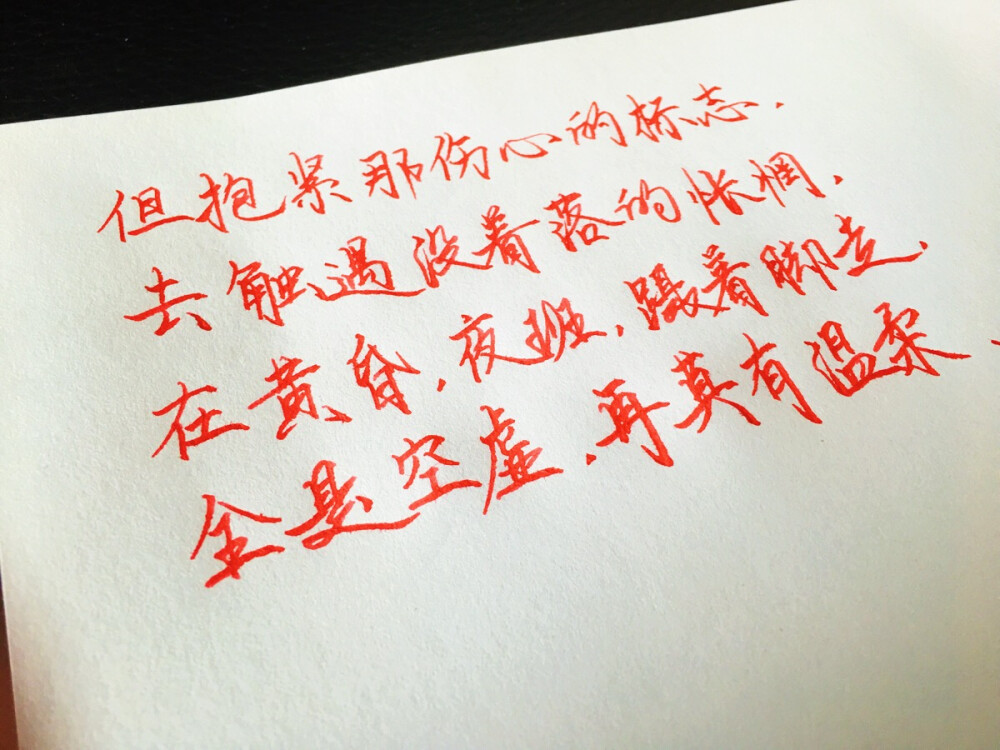 但抱紧那伤心的标志，
去触遇没着落的怅惘，
在黄昏，夜班，蹑着脚走，
全是空虚，再莫有温柔、